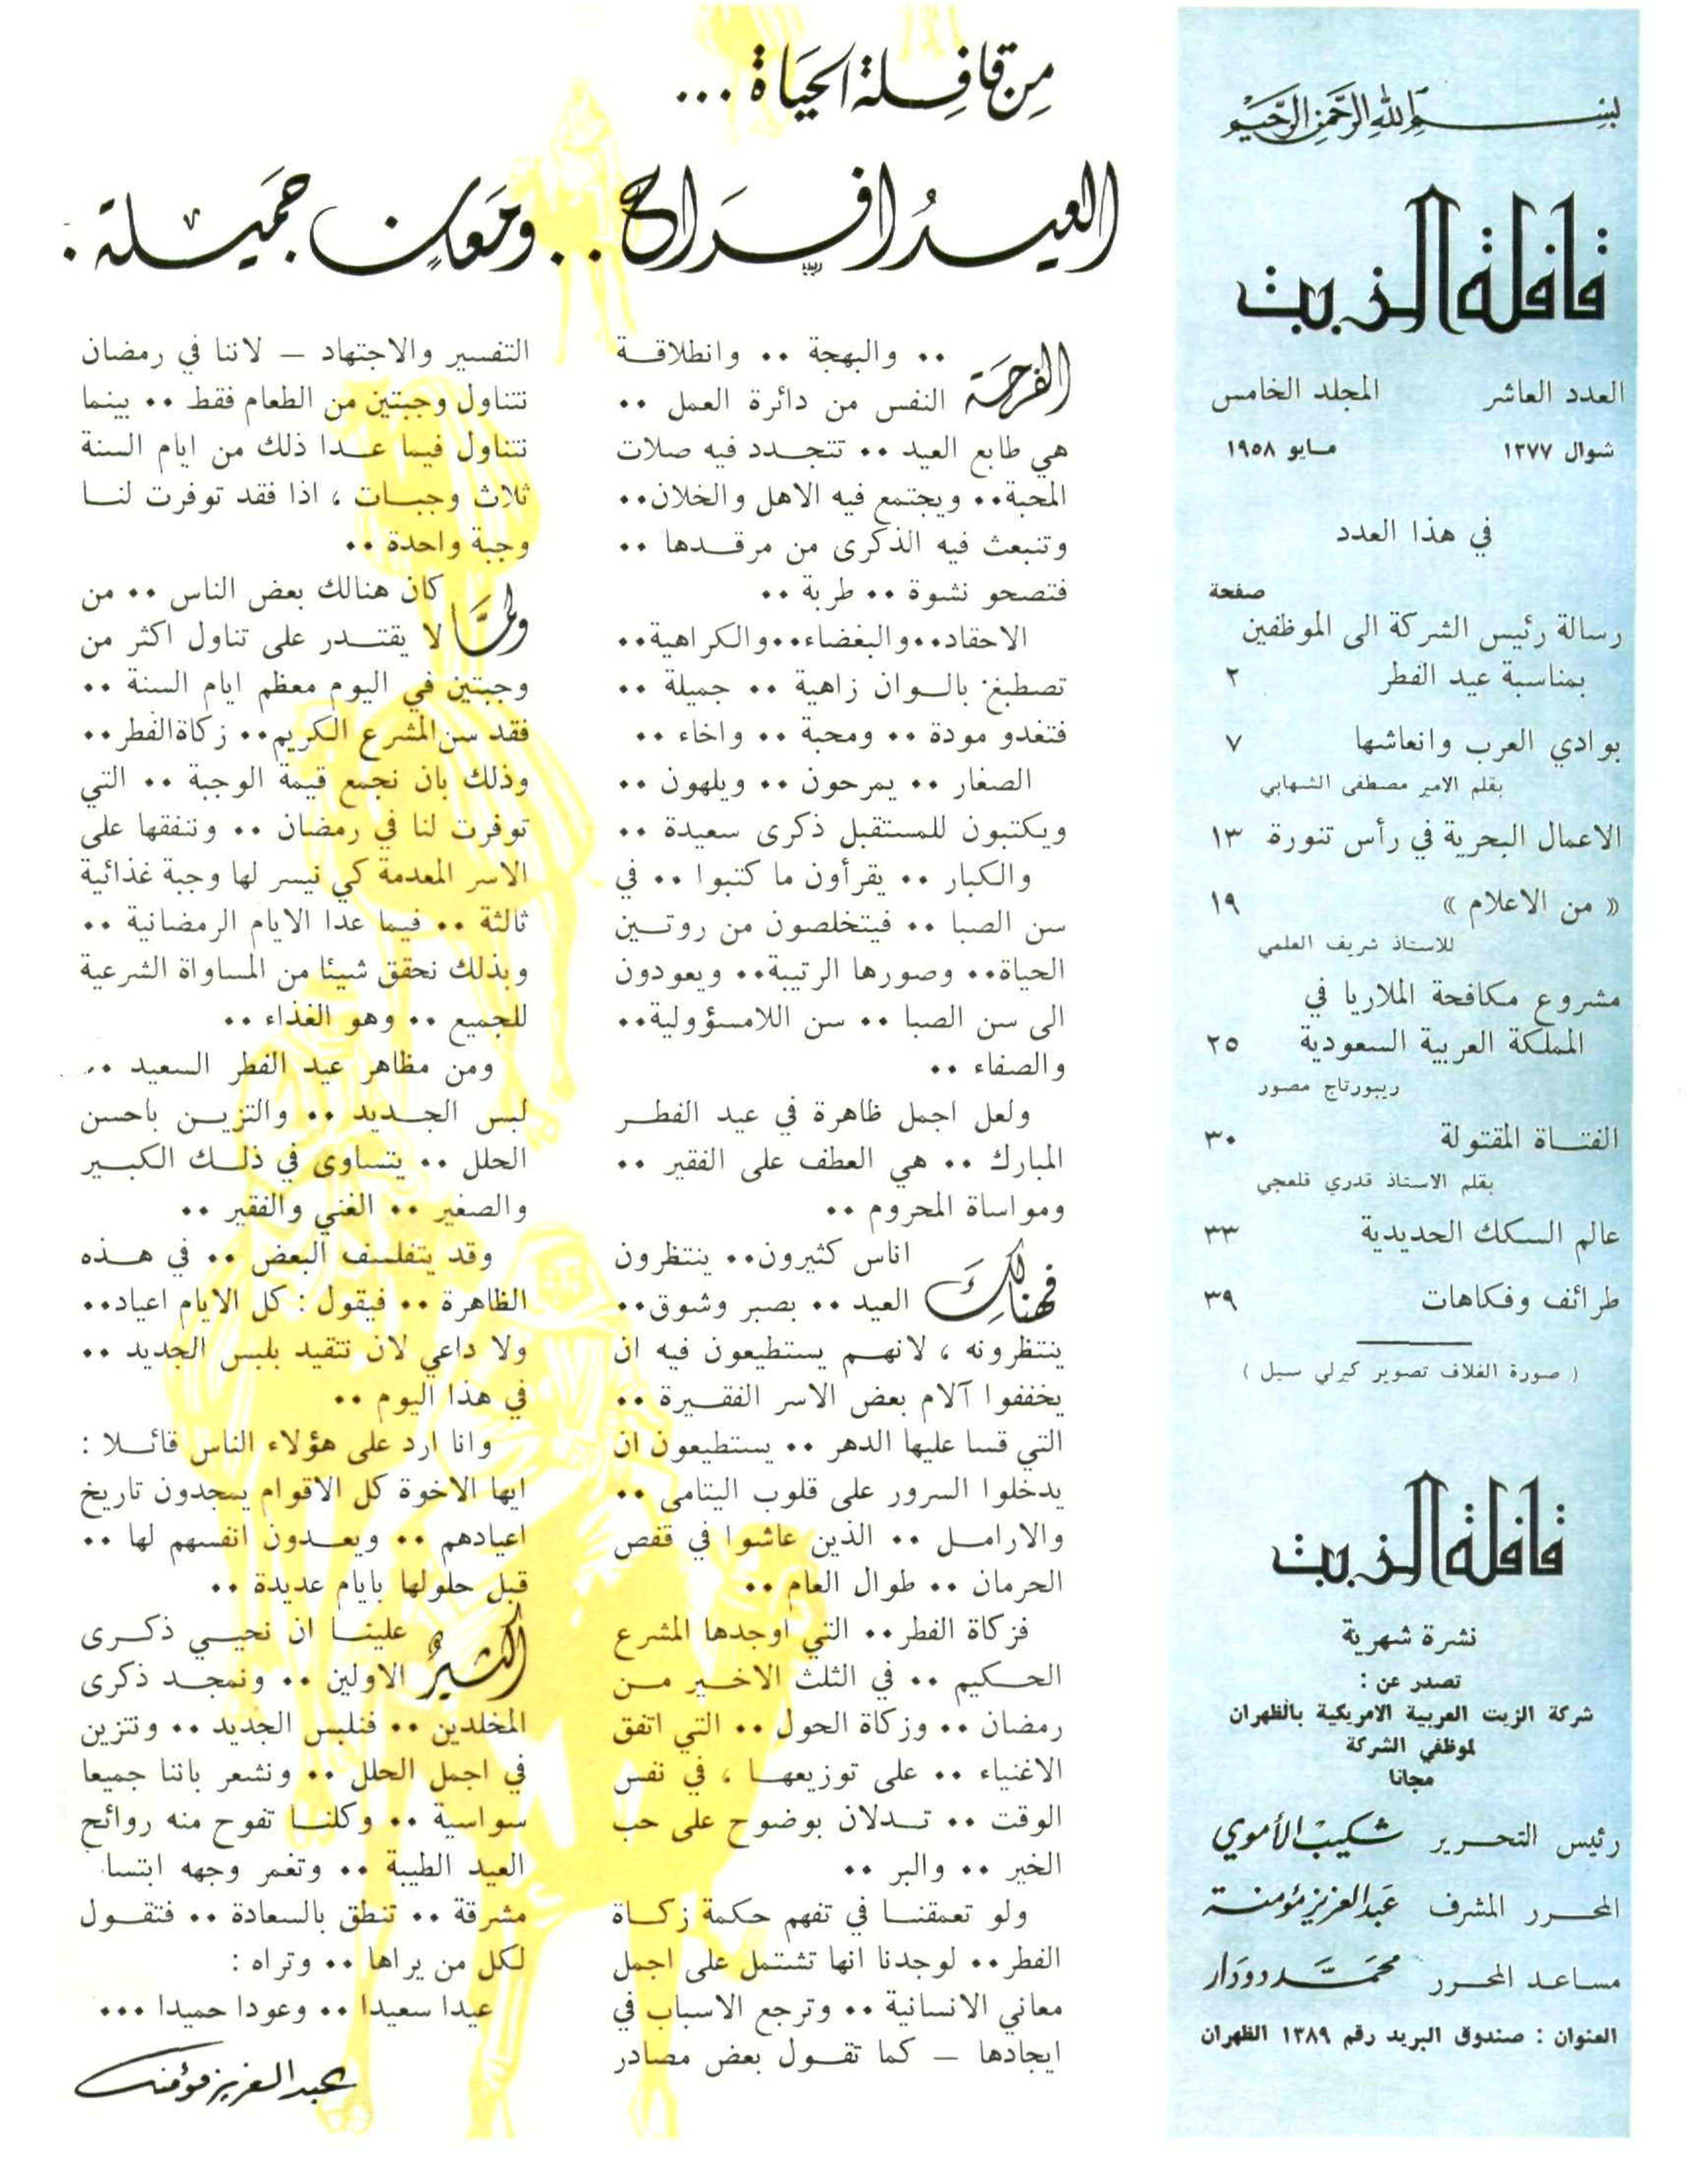 بسم الله الرحمن الرحيم
قافلة الزيت
العدد العاشر المجلد الخامس
شوال ١٣٧٧ مايو ١٩٥٨
في هذا العدد
صفحة
رسالة رئيس الشركة الى الموظفين
بمناسبة عيد الفطر ٢
بوادي العرب وانعاشها ٧
بقلم الامير مصطفى الشهابي
الاعمال البحرية في رأس تنورة ١٣
« من الاعلام » ١٩
للاستاذ شريف العلمي
مشروع مكافحة الملاريا في
المملكة العربية السعودية ٢٥
ريبورتاج مصور
الفتاة المقتولة ٣٠
بقلم الاستاذ قدري قلعجي
عالم السكك الحديدية ٣٣
طرائف وفكاهات ٣٩
( صورة الغلاف تصوير كيرلي سيل )
قافلة الزيت
نشرة شهرية
تصدر عن :
شركة الزيت العربية الامريكية بالظهران
لموظفي الشركة
مجانا
رئيس التحرير شكيب الأموي
المحرر المشرف عبد العزيز مؤمنة
مساعد المحرر محمد دودار
العنوان : صندوق البريد رقم ١٣٨٩ الظهران
من قافلة الحياة ...
العيد افراح .. ومعان جميلة .
الفرحة .. والبهجة .. وانطلاقة
النفس من دائرة العمل ..
هي طابع العيد .. تتجدد فيه صلات
المحبة.. ويجتمع فيه الاهل والخلان..
وتنبعث فيه الذكرى من مرقدها ..
فتصحو نشوة .. طربة ..
الاحقاد..والبغضاء..والكراهية..
تصطبغ بالوان زاهية .. جميلة ..
فتغدو مودة .. ومحبة .. واخاء ..
الصغار .. يمرحون .. ويلهون ..
ويكتبون للمستقبل ذكرى سعيدة ..
والكبار .. يقرأون ما كتبوا .. في
سن الصبا .. فيتخلصون من روتين
الحياة.. وصورها الرتيبة.. ويعودون
الى سن الصبا .. سن اللامسؤولية..
والصفاء ..
ولعل اجمل ظاهرة في عيد الفطر
المبارك .. هي العطف على الفقير ..
ومواساة المحروم ..
فهنالك اناس كثيرون.. ينتظرون
العيد .. بصبر وشوق..
ينتظرونه ، لانهم يستطيعون فيه ان
يخففوا آلام بعض الاسر الفقيرة ..
التي قسا عليها الدهر .. يستطيعون ان
يدخلوا السرور على قلوب اليتامى ..
والارامل .. الذين عاشوا في قفص
الحرمان .. طوال العام ..
فزكاة الفطر.. التي اوجدها المشرع
الحكيم .. في الثلث الاخير من
رمضان .. وزكاة الحول .. التي اتفق
الاغنياء .. على توزيعها ، في نفس
الوقت .. تدلان بوضوح على حب
الخير .. والبر ..
ولو تعمقنا في تفهم حكمة زكاة
الفطر.. لوجدنا انها تشتمل على اجمل
معاني الانسانية .. وترجع الاسباب في
ايجادها – كما تقول بعض مصادر
التفسير والاجتهاد – لاننا في رمضان
نتناول وجبتين من الطعام فقط .. بينما
نتناول فيما عدا ذلك من ايام السنة
ثلاث وجبات ، اذا فقد توفرت لنا
وجبة واحدة ..
ولما كان هنالك بعض الناس .. من
لا يقتدر على تناول اكثر من
وجبتين في اليوم معظم ايام السنة ..
فقد سن المشرع الكريم.. زكاة الفطر..
وذلك بان نجمع قيمة الوجبة .. التي
توفرت لنا في رمضان .. وننفقها على
الاسر المعدمة كي نيسر لها وجبة غذائية
ثالثة .. فيما عدا الايام الرمضانية ..
وبذلك نحقق شيئا من المساواة الشرعية
للجميع .. وهو الغذاء ..
ومن مظاهر عيد الفطر السعيد ..
لبس الجديد .. والتزين باحسن
الحلل .. يتساوى في ذلك الكبير
والصغير .. الغني والفقير ..
وقد يتفلسف البعض .. في هذه
الظاهرة .. فيقول : كل الايام اعياد..
ولا داعي لان نتقيد بلبس الجديد ..
في هذا اليوم ..
وانا ارد على هؤلاء الناس قائلا :
ايها الاخوة كل الاقوام يمجدون تاريخ
اعيادهم .. ويعدون انفسهم لها ..
قبل حلولها بايام عديدة ..
اكثير علينا ان نحيي ذكرى
الاولين .. ونمجد ذكرى
المخلدين .. فنلبس الجديد .. ونتزين
في اجمل الحلل .. ونشعر باننا جميعا
سواسية .. وكلنا تفوح منه روائح
العيد الطيبة .. وتغمر وجهه ابتسا
مشرقة .. تنطق بالسعادة .. فتقول
لكل من يراها .. وتراه :
عيدا سعيدا .. وعودا حميدا ...
عبد العزيز مؤمنة